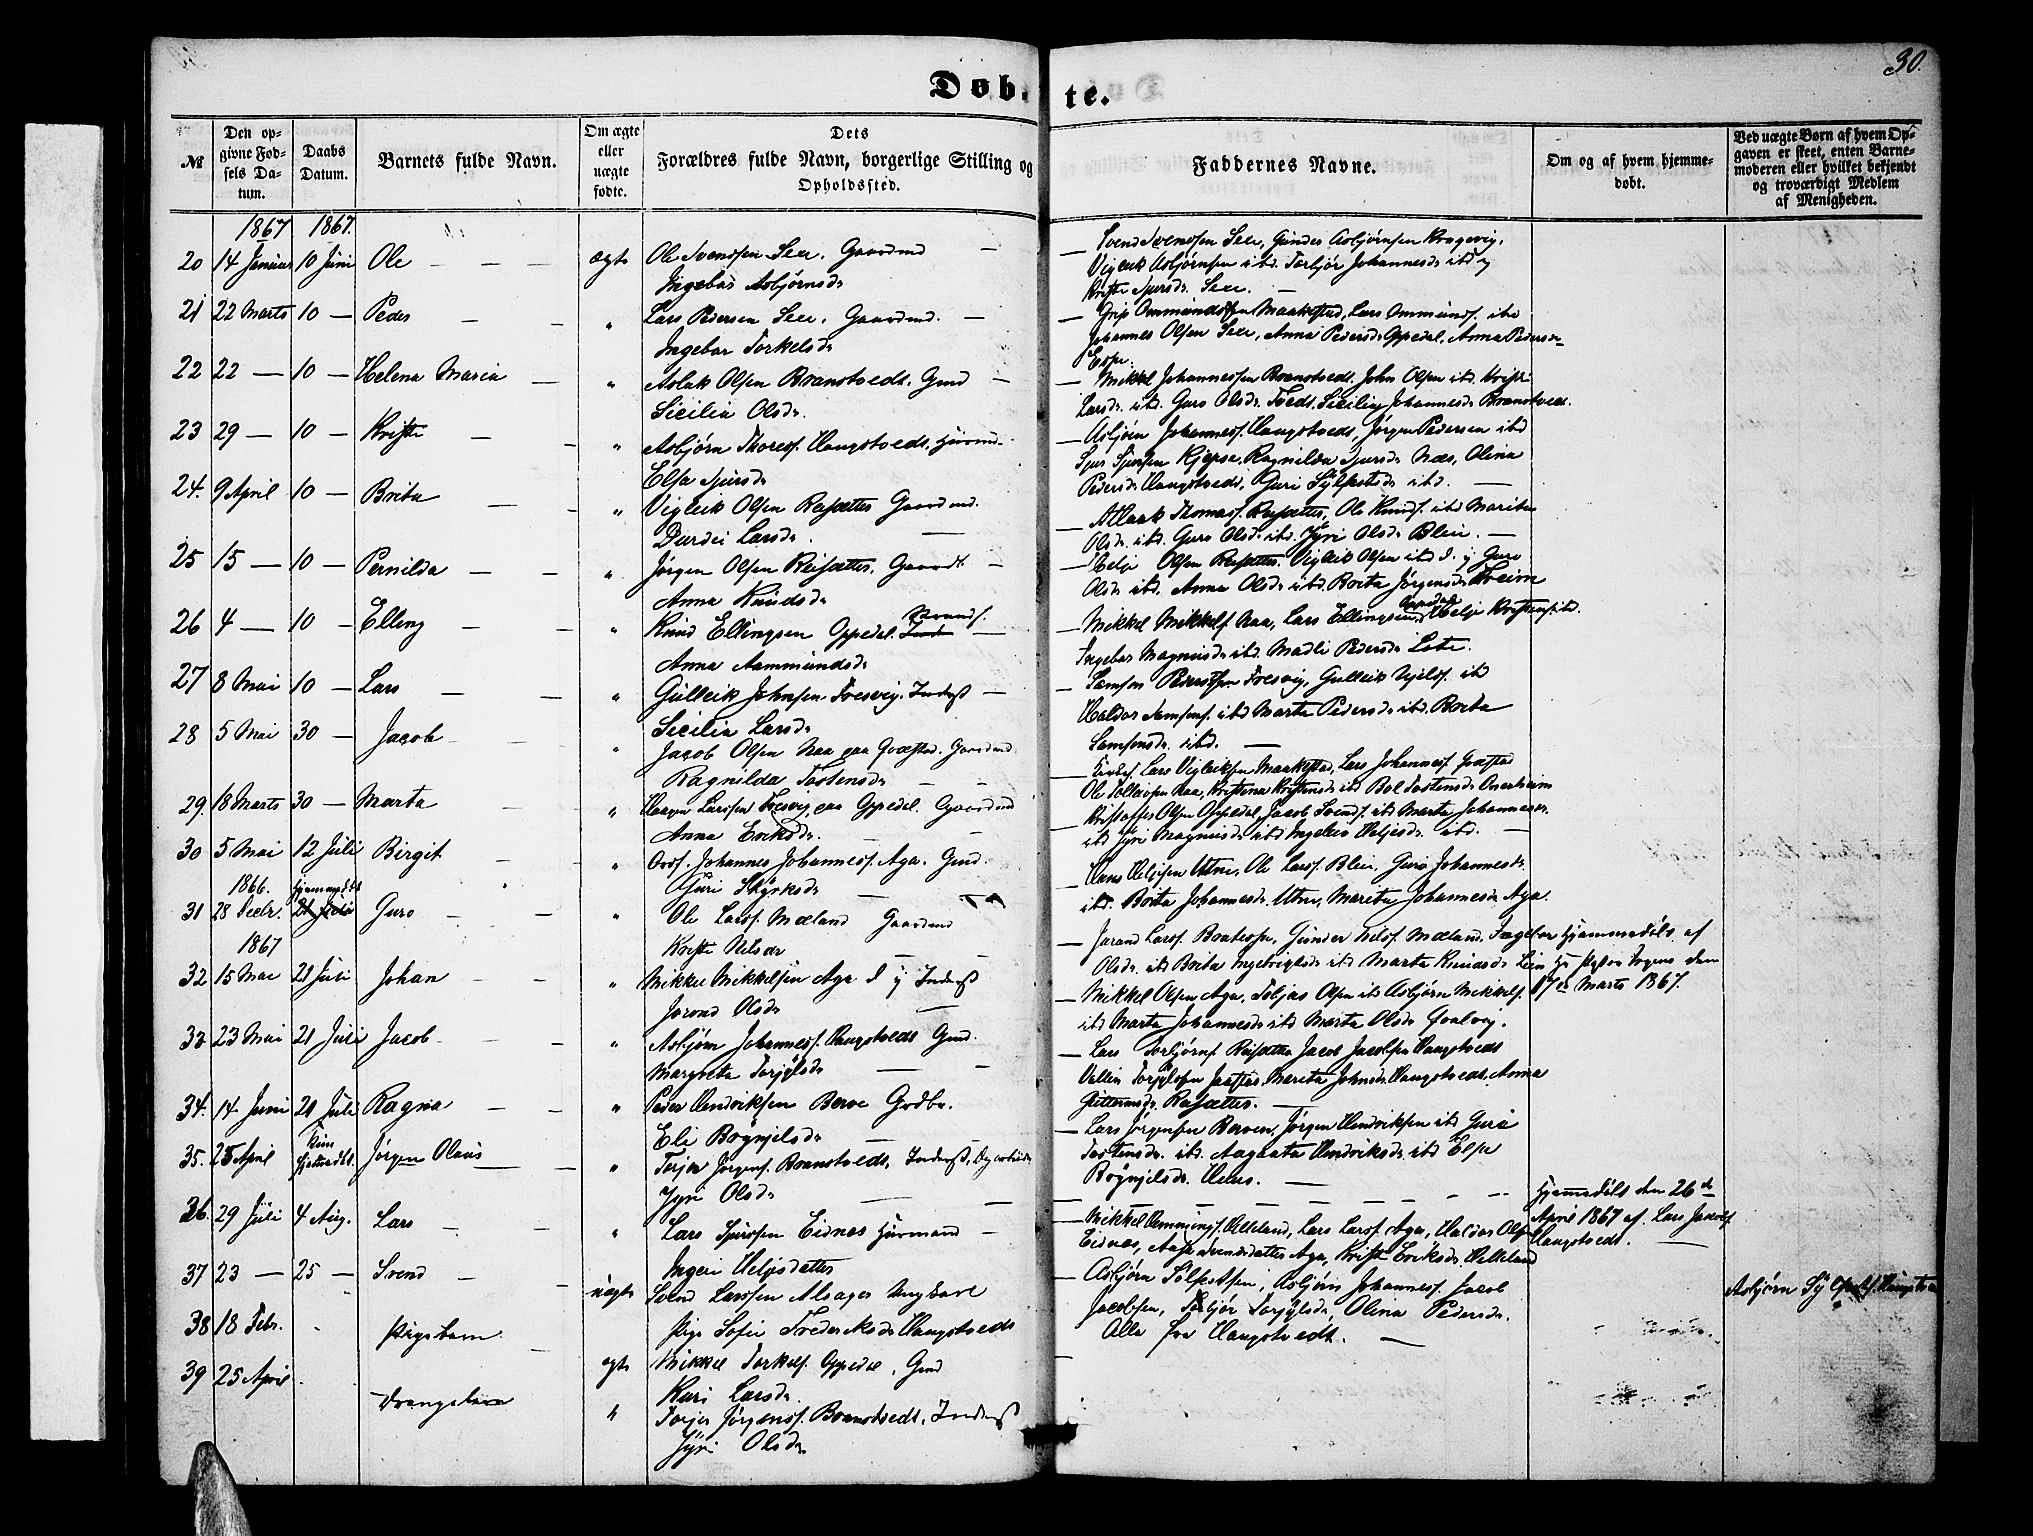 30.
Døb- te.
№
Den op-
givne Fød-
sels Da-
tum.
Daabs
Datum.
Barnets fulde Navn.
Om ægte
eller
uægte
fødte.
Dets
Forældres fulde Navn, borgerlige Stilling og
Opholdssted.
Faddernes Navne.
Om og af hvem hjemme-
døbt.
Ved uægte Børn af hvem Op-
gaven er skeet, enten Barne-
moderen eller hvilket bekjendt
og troværdigt Medlem
af Menigheden.
1867 1867.
20 14 Januar 10 Juni Ole — — — ægte Ole Svendsen See. Gaardmd —
Ingebor Asbjørnsdr
— Svend Svendsen See, Gunder Asbjørnsen Kragevig,
Vigleik Asbjørnsen ibd. Torbjør Johannesdr ibd og
Kristi Sjursdr. See. —
21 22 Marts 10 — Peder — — " Lars Pedersen See. Gaardmd. —
Ingebor Torkelsdr
— Grip Ommundsen Maakestad, Lars Ommunds. ibd
Johannes Olsen See, Anna Pedersdr Oppedal, Anna Pedersdr
Espe.
22 22 — 10 — Helena Maria — " Aslak Olsen Branstvedt. Gmd —
Sicilia Olsdr.
— Mikkel Johannessen Branstvedt. John Olsen ibd. Kristi
Larsdr. ibd. Guro Olsdr. Tvedt. Sicilia Johannesdr Branstvedt.
23 29 — 10 — Kristi — — " Asbjørn Thoress. Haugstvedt. Huusmd. —
Elsa Sjursdr
— Asbjørn Johanness. Haugstvedt, Jørgen Pedersen ibd
Sjur Sjursen Ragnilda Sjursdr Næs, Olina
Pedersdr Haugstvedt. Guri Sylfestsdr ibd. —
24. 9 April 10 — Brita — — " Vigleik Olsen Reisæter Gaardmd.
Durdei Larsdr. —
— Aslaak Thomass. Reisæter, Ole Knuds. ibd Marita
Olsdr. ibd. Guro Olsdr ibd. Jyri Olsdr Blein. —
25 15 — 10 — Pernilda — — " Jørgen Olsen Reisæter. Gaardmd. —
Anna Knudsdr
— Helje Olsen Reisæter. Vigleik Olsen ibd d. y Guro
Olsdr ibd. Anna Olsdr ibd. Brita Jørgensdr Freim
26 4 — 10 — Elling — — " Knud Ellingsen Oppedal. —
Anna Aammundsdr
— Mikkel Mikkels Naa, Lars Ellingsen Helje Kristens. ibd.
Ingebor Magnusdr ibd. Madli Pedersdr Lote.
27 8 Mai 10 — Lars — — " Gulleik Johnsen Tresvig. Inderst —
Sicilia Larsdr
— Samson Pedersen Tresvig, Gulleik Njels. ibd
Haldor Samsons. ibd Marta Pedersdr ibd. Brita
Samsonsdr. ibd. —
28 5 Mai 30 — Jacob — — " Jacob Olsen Naa paa Qvæstad. Gaardmd
Ragnilda Tostensdr — —
Lars Vigleiksen Maakestad, Lars Johanness. Qvæstad
Ole Tollevsen Naa, Kristina Kristensdr ibd Bol Tostensdr
29. 18 Marts 30 — Marta — " Haagen Larssen Tresvig, paa Oppedal. Gaardmd
Anna Eriksdr. — —
Kristoffer Olsen Oppedal, Jacob Svends. ibd Marta Johannesdr.
ibd Jyri Magnusdr ibd Ingeleiv Heljesdr. ibd. —
30 5 Mai 12 Juli Birgit — — " Johannes Johanness. Aga. Gmd.
Guri Styrksdr —
— Hans Heljesen Utne, Ole Larss. Blein. Guro Johannesdr.
ibd. Brita Johannesdr. Utne, Marita Johannesdr. Aga.
1866. Hjemmedøbt
31 28 Decbr. Guro — — " Ole Larss. Mæland Gaardmd
Kristi Nilsdr — —
— Jarand Larss. Bratespe, Gunder Nils. Mæland. Ingebor Hjemmedøbt af
Olsdr. ibd Brita Ingebrigtsdr ibd Marta Knudsdr Lein den
17de Marts 1867.
1867
32 15 Mai 21 Juli Johan — — " Mikkel Mikkelsen Aga d y Inderst
Jorond Olsdr —
— Mikkel Olsen Aga, Tobjas Olsen ibd Asbjørn Mikkels.
ibd Marta Johannesdr ibd Marta Olsdr Qvalvig.
33 23 Mai 21 Juli Jacob — — " Asbjørn Johanness. Haugstvedt Gmd.
Margreta Torjylsdr — —
— Lars Torbjørns. Reisæter Jacob Jacobsen Haugstvedt
Torjylsen Jaastad, Marita Johnsdr. Haugstvedt. Anna
Guttormsdr. Reisæter. —
34. 14 Juni 21 Juli Ragna — — " Peder Hendriksen Berve Gdbr.
Eli Bøgnjelsdr —
— Lars Jørgensen Berven, Jørgen Hendriksen ibd Guro
Tostensdr. ibd. Aagaata Hendriksdr. ibd Elsa
Bøgnjelsdr. Huus. —
35. 25 April kun hjemmedbt. Jørgen Olaus — " Torjer Jørgens. Branstvedt, Inderst, Dagarbeider
Jyri Olsdr — —
— — — — — Hjemmedøbt den 26de
April 1867 af Lars Jacobs.
Haugstvedt. —
36. 29 Juli 4 Aug. Lars — — " Lars Sjurssen Eidnes Huusmand —
Ingeri Heljesdatter
— Mikkel Hemmings. Helleland, Lars Larss. Aga, Haldor Olss.
Eidnæs, Aasa Svendsdatter Aga, Kristi Eriksdr. Helleland
37 23 — 25 — Svend — — uægte Svend Larssen Alsager Ungkarl
Pige Sofie Frederiksdr Haugstvedt
— Asbjørn Sylfestsen, Asbjørn Johanness. Jacob
Jacobsen, Torbjør Torjylsdr, Olina Pedersdr.
Alle fra Haugstvedt. —
Asbjørn Sylfests. Haugstvedt
38 18 Febr. Pigebarn — ægte Mikkel Torkels. Oppedal, Gmd
Kari Larsdr.
39 25 April Drengebarn " Torjer Jørgens. Branstvedt, Inderst
Jyri Olsdr